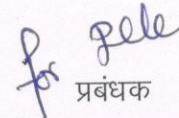 for
प्रबंधक